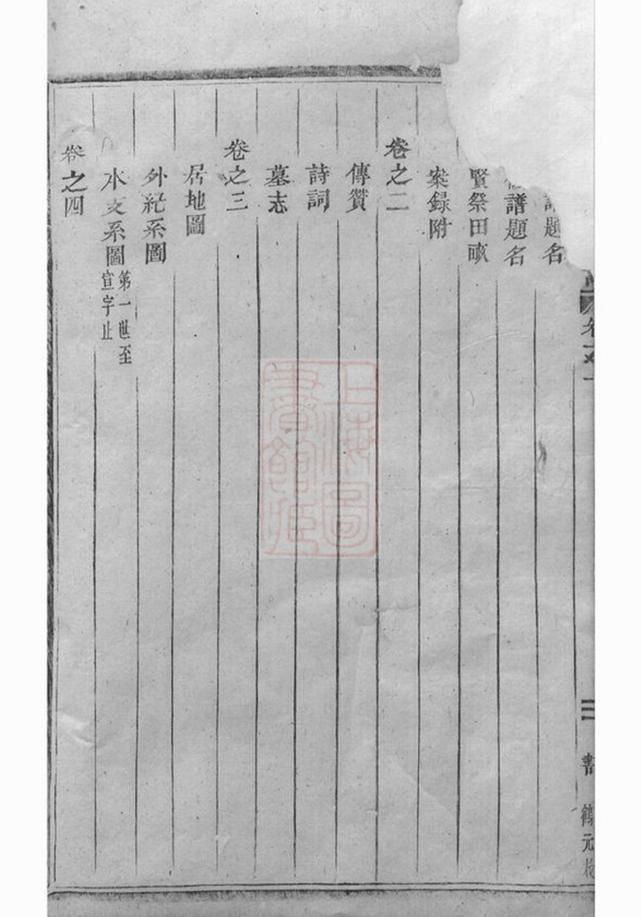 譜題名
譜題名
賢祭田畝
案録附
卷之二
傳贊
詩詞
墓志
卷之三
居地圖
外紀系圖
本支系圖 第一世至
宣字止
卷之四
卷之一
三
上海圖書館藏